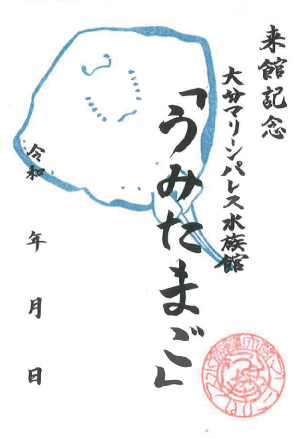 来館記念
大分マリーンパレス水族館
「うみたまご」
令和　年　月　日